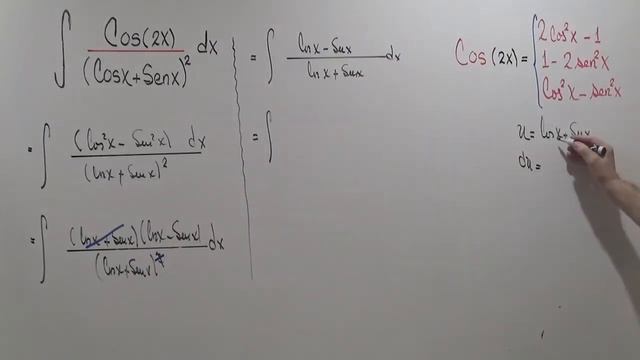 ∫ Cos(2x) / (Cosx+Senx)² dx
= ∫ (Cos²x - Sen²x) dx / (Cosx + Senx)²
= ∫ (Cosx + Senx)(Cosx - Senx) / (Cosx+Senx)² dx
= ∫ Cosx - Senx / Cosx + Senx dx
= ∫
Cos (2x) = {
2Cos²x - 1
1 - 2sen²x
Cos²x - sen²x
u = Cosx + Senx
du =